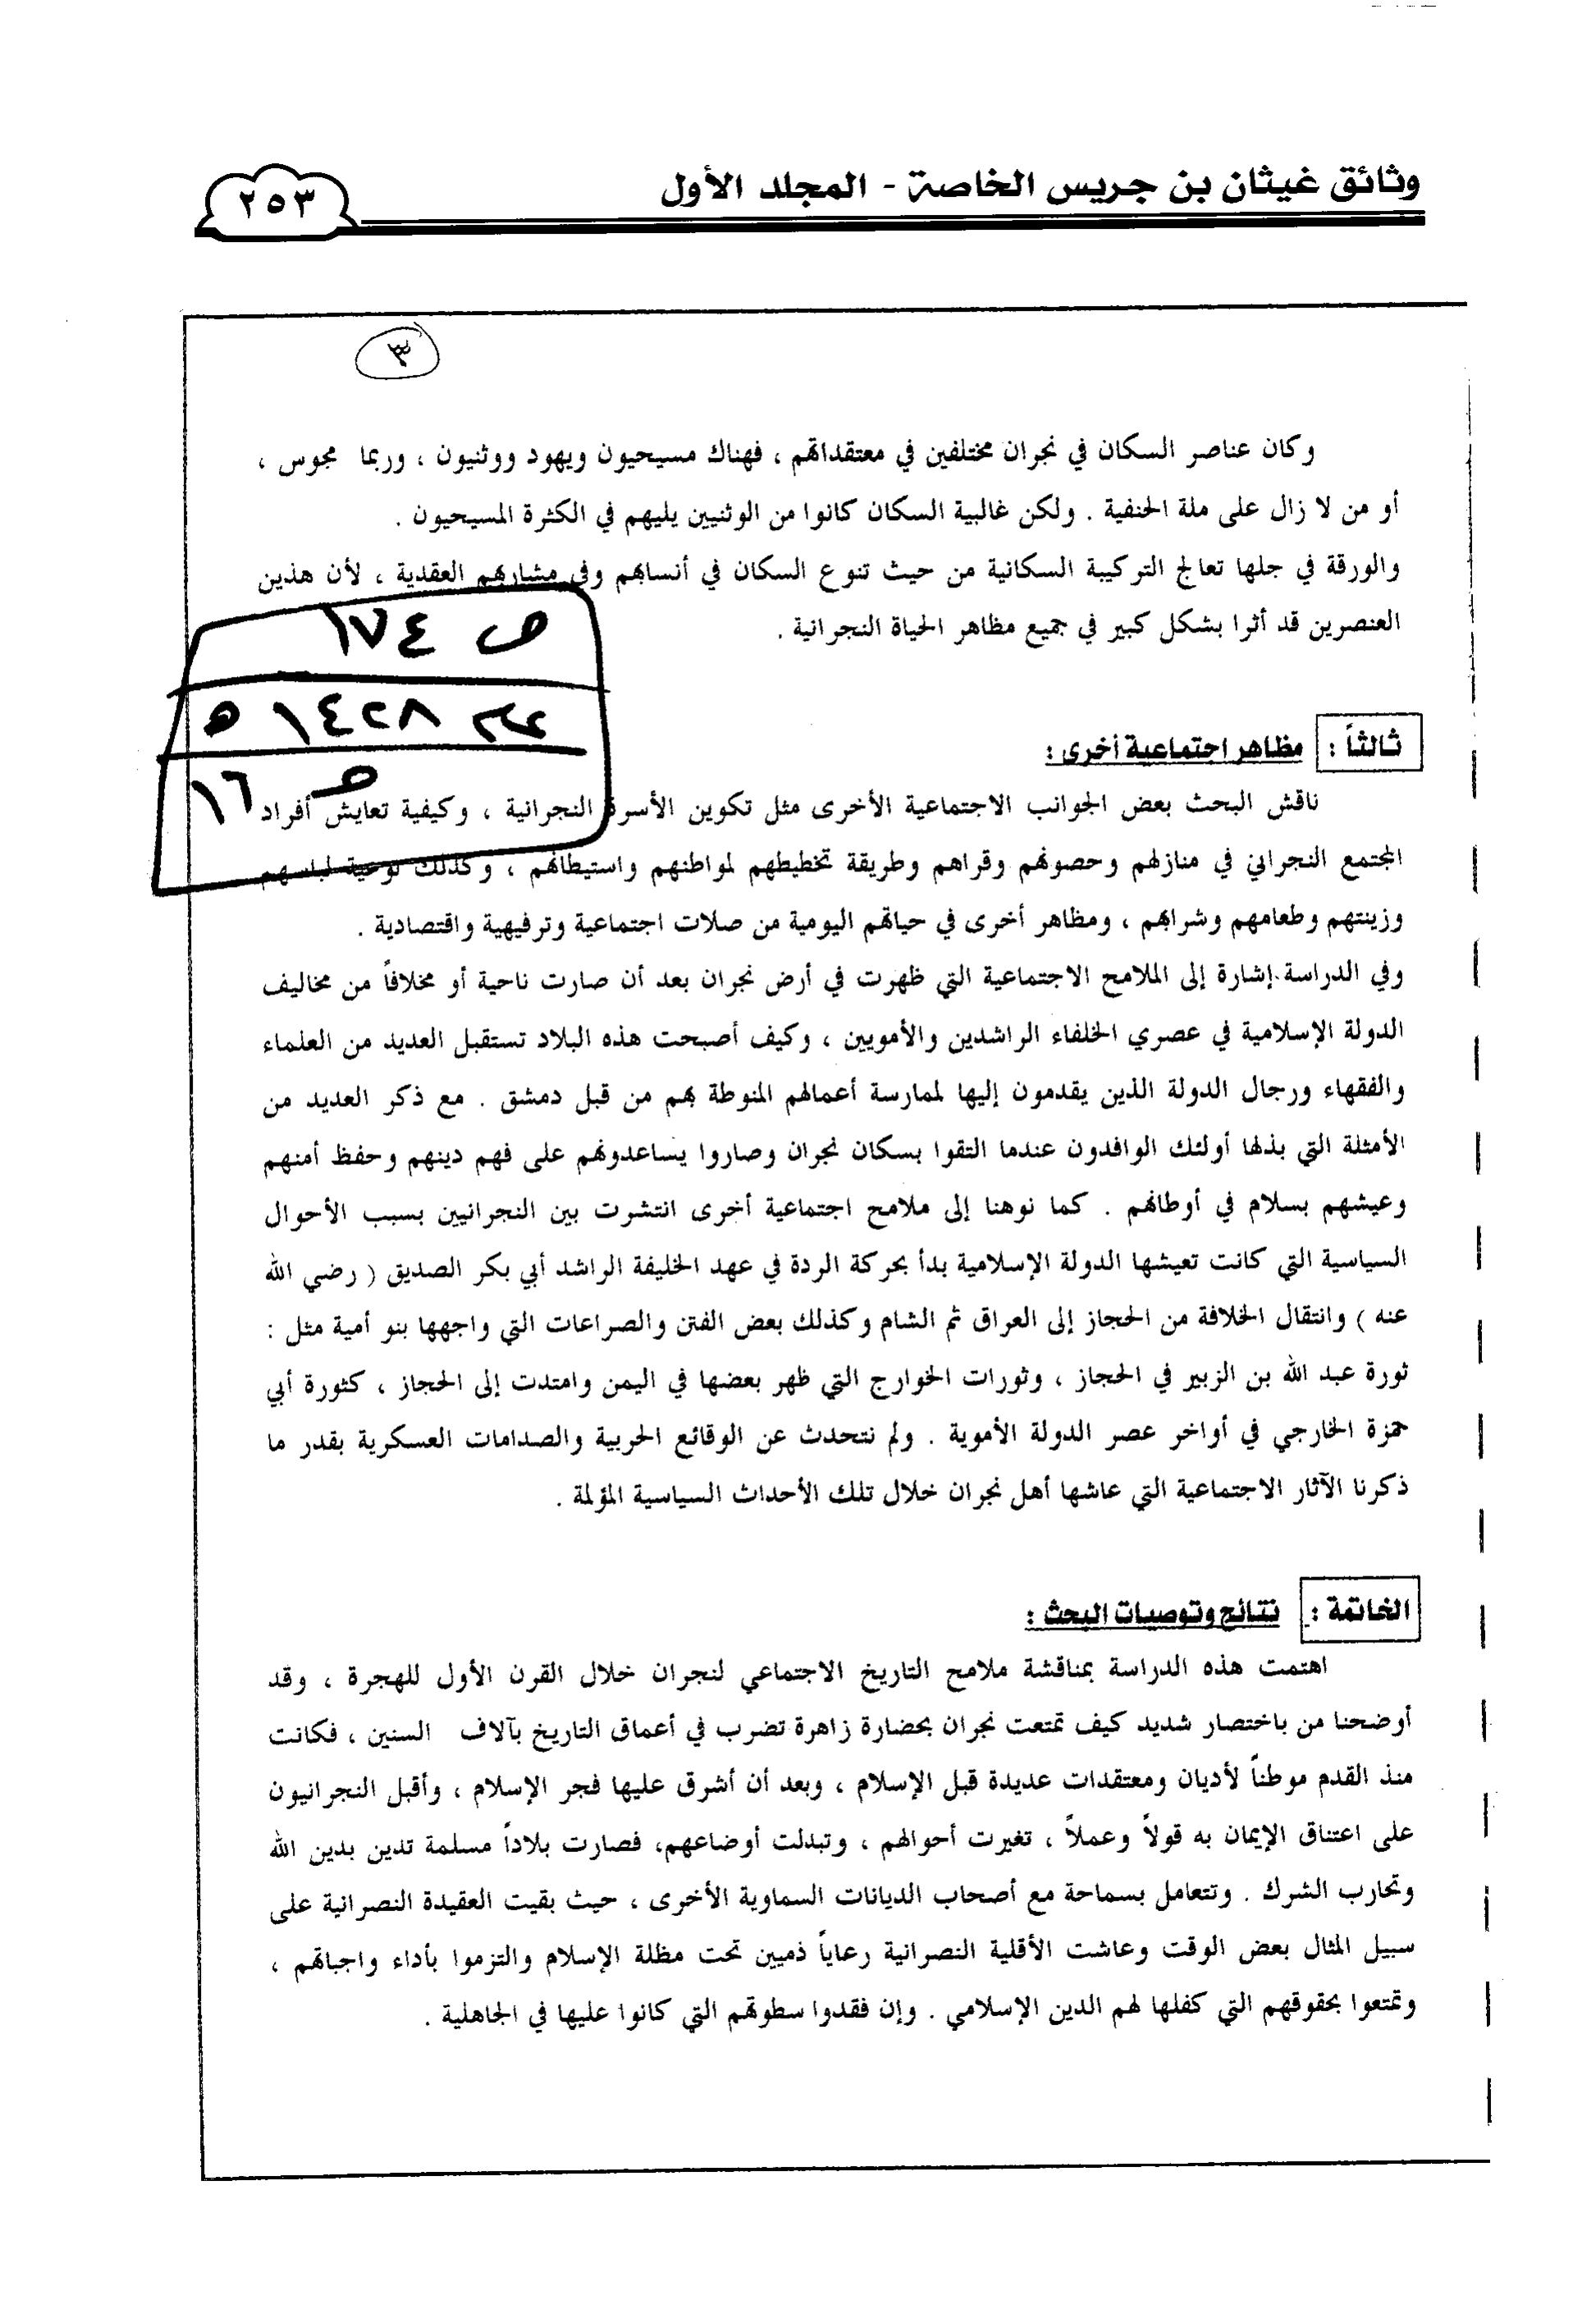 وثائق غيثان بن جريس الخاصة - المجلد الأول
٢٥٣
٣
وكان عناصر السكان في نجران مختلفين في معتقداتهم ، فهناك مسيحيون ويهود ووثنيون ، وربما مجوس ،
أو من لا زال على ملة الحنفية . ولكن غالبية السكان كانوا من الوثنيين يليهم في الكثرة المسيحيون .
والورقة في جلها تعالج التركيبة السكانية من حيث تنوع السكان في أنسابهم وفي مشاربهم العقدية ، لأن هذين
العنصرين قد أثرا بشكل كبير في جميع مظاهر الحياة النجرانية .
ص ١٧٤
١٤٢٨ ه
ص ١٦
ثالثاً : مظاهر اجتماعية أخرى :
ناقش البحث بعض الجوانب الاجتماعية الأخرى مثل تكوين الأسرة النجرانية ، وكيفية تعايش أفراد
المجتمع النجراني في منازلهم وحصونهم وقراهم وطريقة تخطيطهم لمواطنهم واستيطانهم ، وكذلك نوعية لباسهم
وزينتهم وطعامهم وشرابهم ، ومظاهر أخرى في حياتهم اليومية من صلات اجتماعية وترفيهية واقتصادية .
وفي الدراسة إشارة إلى الملامح الاجتماعية التي ظهرت في أرض نجران بعد أن صارت ناحية أو مخلافاً من مخاليف
الدولة الإسلامية في عصري الخلفاء الراشدين والأمويين ، وكيف أصبحت هذه البلاد تستقبل العديد من العلماء
والفقهاء ورجال الدولة الذين يقدمون إليها لممارسة أعمالهم المنوطة بهم من قبل دمشق . مع ذكر العديد من
الأمثلة التي بذلها أولئك الوافدون عندما التقوا بسكان نجران وصاروا يساعدونهم على فهم دينهم وحفظ أمنهم
وعيشهم بسلام في أوطانهم . كما نوهنا إلى ملامح اجتماعية أخرى انتشرت بين النجرانيين بسبب الأحوال
السياسية التي كانت تعيشها الدولة الإسلامية بدأ بحركة الردة في عهد الخليفة الراشد أبي بكر الصديق ( رضي الله
عنه ) وانتقال الخلافة من الحجاز إلى العراق ثم الشام وكذلك بعض الفتن والصراعات التي واجهها بنو أمية مثل :
ثورة عبد الله بن الزبير في الحجاز ، وثورات الخوارج التي ظهر بعضها في اليمن وامتدت إلى الحجاز ، كثورة أبي
حمزة الخارجي في أواخر عصر الدولة الأموية . ولم نتحدث عن الوقائع الحربية والصدامات العسكرية بقدر ما
ذكرنا الآثار الاجتماعية التي عاشها أهل نجران خلال تلك الأحداث السياسية المؤلمة .
الخاتمة : نتائج وتوصيات البحث :
اهتمت هذه الدراسة بمناقشة ملامح التاريخ الاجتماعي لنجران خلال القرن الأول للهجرة ، وقد
أوضحنا من باختصار شديد كيف تمتعت نجران بحضارة زاهرة تضرب في أعماق التاريخ بآلاف السنين ، فكانت
منذ القدم موطناً لأديان ومعتقدات عديدة قبل الإسلام ، وبعد أن أشرق عليها فجر الإسلام ، وأقبل النجرانيون
على اعتناق الإيمان به قولاً وعملاً ، تغيرت أحوالهم ، وتبدلت أوضاعهم، فصارت بلاداً مسلمة تدين بدين الله
وتحارب الشرك . وتتعامل بسماحة مع أصحاب الديانات السماوية الأخرى ، حيث بقيت العقيدة النصرانية على
سبيل المثال بعض الوقت وعاشت الأقلية النصرانية رعاياً ذميين تحت مظلة الإسلام والتزموا بأداء واجباتهم ،
وتمتعوا بحقوقهم التي كفلها لهم الدين الإسلامي . وإن فقدوا سطوتهم التي كانوا عليها في الجاهلية .